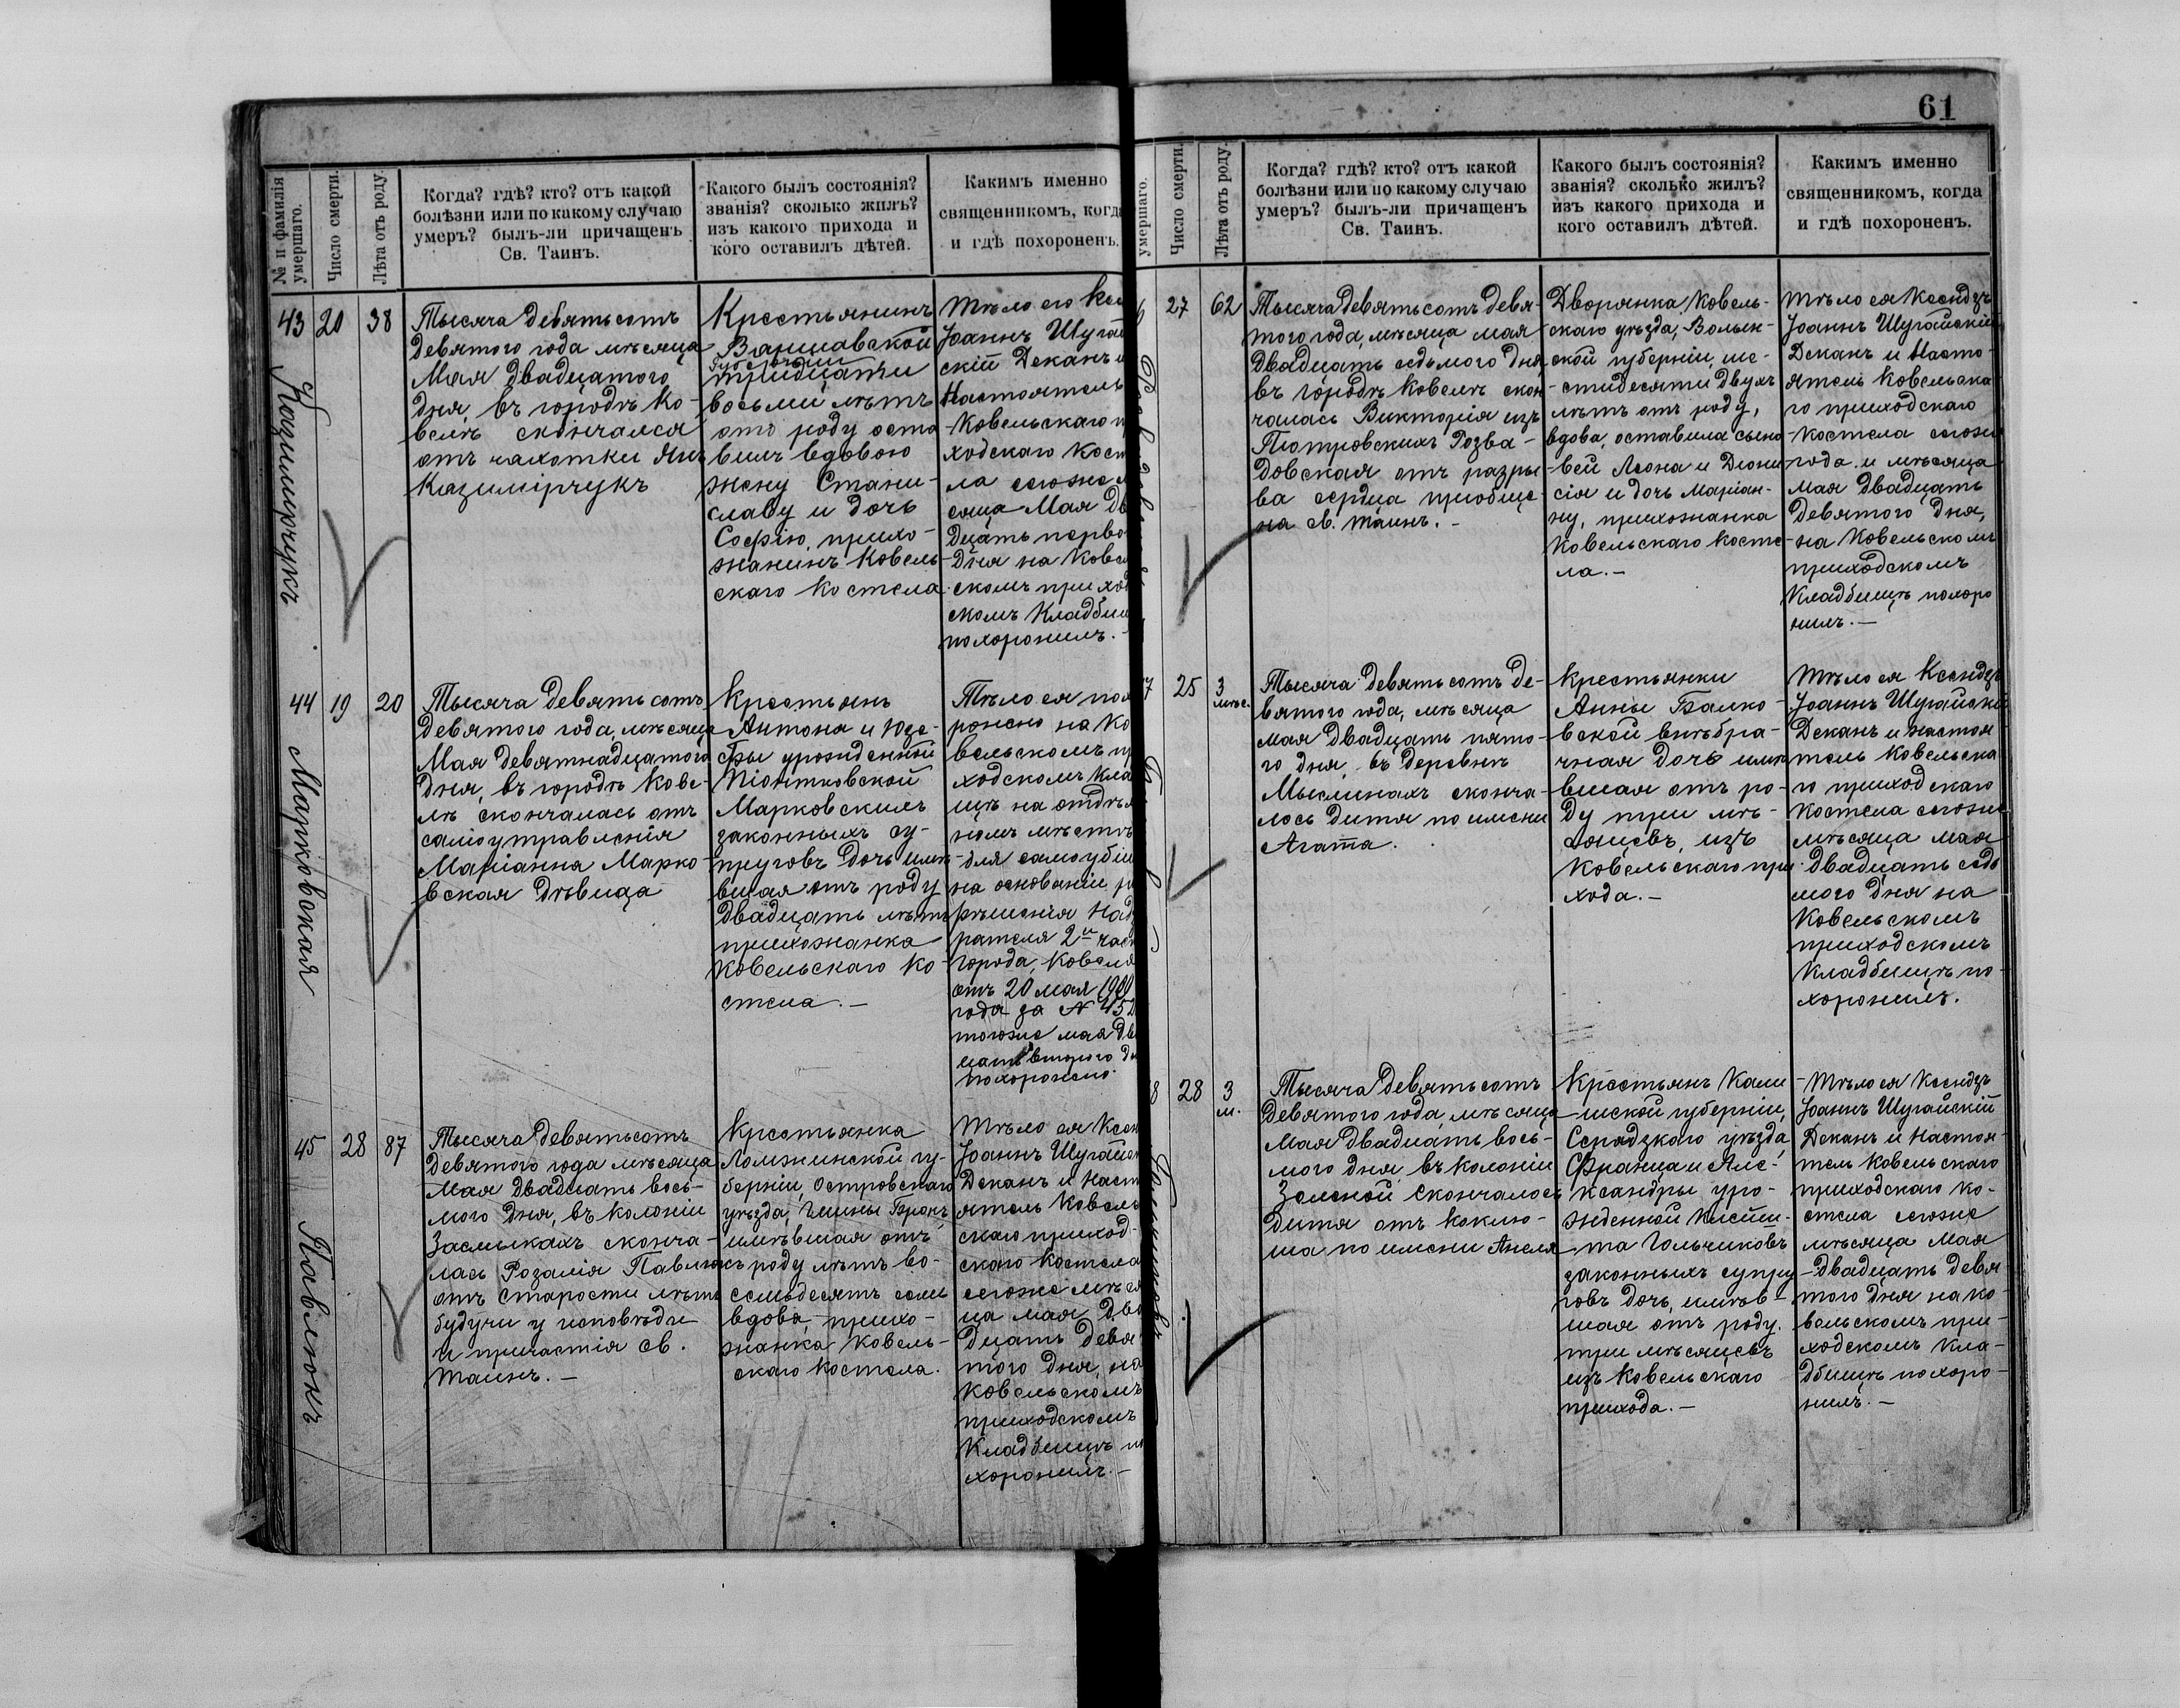 61
№ и фамилія умершаго.
Число смерти.
Лѣта отъ роду.
Когда? гдѣ? кто? отъ какой
болѣзни или по какому случаю
умеръ? былъ-ли причащенъ
Св. Таинъ.
Какого былъ состоянія?
званія? сколько жилъ?
изъ какого прихода и
кого оставилъ дѣтей.
Какимъ именно
священникомъ, когда
и гдѣ похороненъ.
43
Казимирчукъ
20
38
Тысяча девятьсотъ
девятого года мѣсяца
Мая двадцатого
дня, въ городѣ Ко-
велѣ скончался
отъ чахотки Янъ
Казимірчукъ
Крестьянинъ
Варшавской
губерніи
тридцати
восьми лѣтъ
отъ роду оста
вилъ вдовою
жену Стани-
славу и дочь
Софію, прихо-
жанинъ Ковель
скаго костела
Тѣло его Ксе
Іоаннъ Шугай
скій Деканъ и
Настоятель
Ковельскаго п
ходскаго кост
ла сегоже м
сяца Мая Дв
дцать перво
дня на Ковел
скомъ приход
скомъ Кладбищ
похоронилъ.-
44
Марковская
19
20
Тысяча девятьсотъ
девятого года, мѣсяца
Мая девятнадцатого
дня, въ городѣ Кове-
лѣ скончалась отъ
самоуправленія
Маріанна Марко-
вская дѣвица
Крестьянъ
Антона и Юзе-
фы урожденной
Піонтковской
Марковскихъ
законныхъ су-
пруговъ дочь имѣ
вшая отъ роду
двадцать лѣтъ
прихожанка
Ковельскаго ко-
стела.-
Тѣло ея пох
ронено на Ко
вельскомъ пр
ходскомъ кла
щѣ на отдѣл
номъ мѣстѣ
для самоубій
на основаніи р
рѣшенія Над
рателя 2й част
города Ковеля
отъ 20 мая 1909
года за № 452
тогоже мая дв
цать второго дн
похоронено.
45
Павлюкъ
28
87
Тысяча девятьсотъ
девятого года мѣсяца
Мая двадцать вось-
мого дня, въ колоніи
Засмыкахъ сконча-
лась Розалія Павлюкъ
отъ старости лѣтъ
будучи у исповѣди
и причастія св.
Таинъ.-
Крестьянка
Ломжинской гу-
берніи, Островскаго
уѣзда, Гмины Брокъ
имѣвшая отъ
роду лѣтъ во-
семьдесятъ семь
вдова, прихо-
жанка Ковель-
скаго костела.
Тѣло ея Ксен
Іоаннъ Шугайск
Деканъ и Наст
ятель Ковель
скаго приход-
скаго костела
сегоже мѣся
ца мая два
дцать девя
того дня, на
Ковельскомъ
приходскомъ
Кладбищѣ по
хоронилъ.-
умершаго.
Число смерти.
Лѣта отъ роду.
Когда? гдѣ? кто? отъ какой
болѣзни или по какому случаю
умеръ? былъ-ли причащенъ
Св. Таинъ.
Какого былъ состоянія?
званія? сколько жилъ?
изъ какого прихода и
кого оставилъ дѣтей.
Какимъ именно
священникомъ, когда
и гдѣ похороненъ.
6
27
62
Тысяча девятьсотъ девя-
того года, мѣсяца мая
двадцать седьмого дня
въ городѣ Ковелѣ скон
чалась Викторія изъ
Піотровскихъ Розва-
довская отъ разры-
ва сердца приобще-
на св. Таинъ.-
Дворянка, Ковель-
скаго уѣзда, Волын-
ской губерніи, ше-
стидесяти двухъ
лѣтъ отъ роду,
вдова, оставила сыно
вей Леона и Діони
сія и дочь Маріан-
ну, прихожанка
Ковельскаго косте
ла.-
Тѣло ея Ксендзъ
Іоаннъ Шугайскій
Деканъ и Насто-
ятель Ковельска
го приходскаго
костела сегоже
года и мѣсяца
мая двадцать
девятого дня,
на Ковельскомъ
приходскомъ
Кладбищѣ похоро
нилъ.-
7
25
3
мѣс.
Тысяча девятьсотъ де-
вятого года, мѣсяца
мая двадцать пято-
го дня, въ деревнѣ
Мыслинахъ сконча-
лось дитя по имени
Агата.
Крестьянки
Анны Балко-
вской внѣбра-
чная дочь имѣ
вшая отъ ро-
ду три мѣ-
сяцевъ, изъ
Ковельскаго при
хода.-
Тѣло ея Ксендзъ
Іоаннъ Шугайскій
Деканъ и настоя
тель Ковельска
го приходскаго
костела сегоже
мѣсяца мая
двадцать седь
мого дня на
Ковельскомъ
приходскомъ
Кладбищѣ по-
хоронилъ.
8
28
3
м.
Тысяча девятьсотъ
девятого года, мѣсяца
Мая двадцать вось-
мого дня, въ колоніи
Зеленой скончалось
дитя отъ коклю-
ша по имени Анеля
Крестьянъ Кали
шской губерніи,
Серадзкаго уѣзда,
Франца и Але-
ксандры уро-
жденной
Гольчиковъ
законныхъ супру
говъ дочь, имѣв-
шая отъ роду.
три мѣсяцевъ
изъ Ковельскаго
прихода.-
Тѣло ея Ксендзъ
Іоаннъ Шугайскій
Деканъ и Настоя-
тель Ковельскаго
приходскаго ко-
стела сегоже
мѣсяца Мая
двадцать девя
того дня на Ко-
вельскомъ при-
ходскомъ Кла-
дбищѣ похоро-
нилъ.-